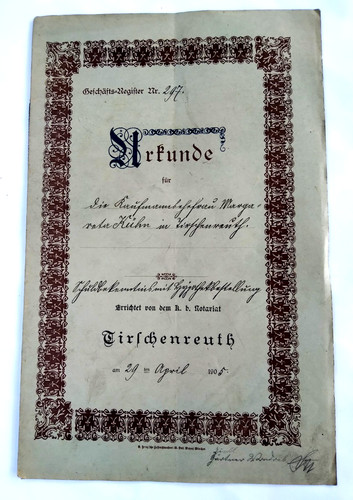 Geschäfts-Register Nr. 297.
Urkunde
für
die Kaufmannsehefrau Marga-
reta Kühn in Tirschenreuth.
Schuldbekenntnis mit Hypothekbestellung
Errichtet von dem K. b. Notariat
Tirschenreuth
am 29ten April 1905.